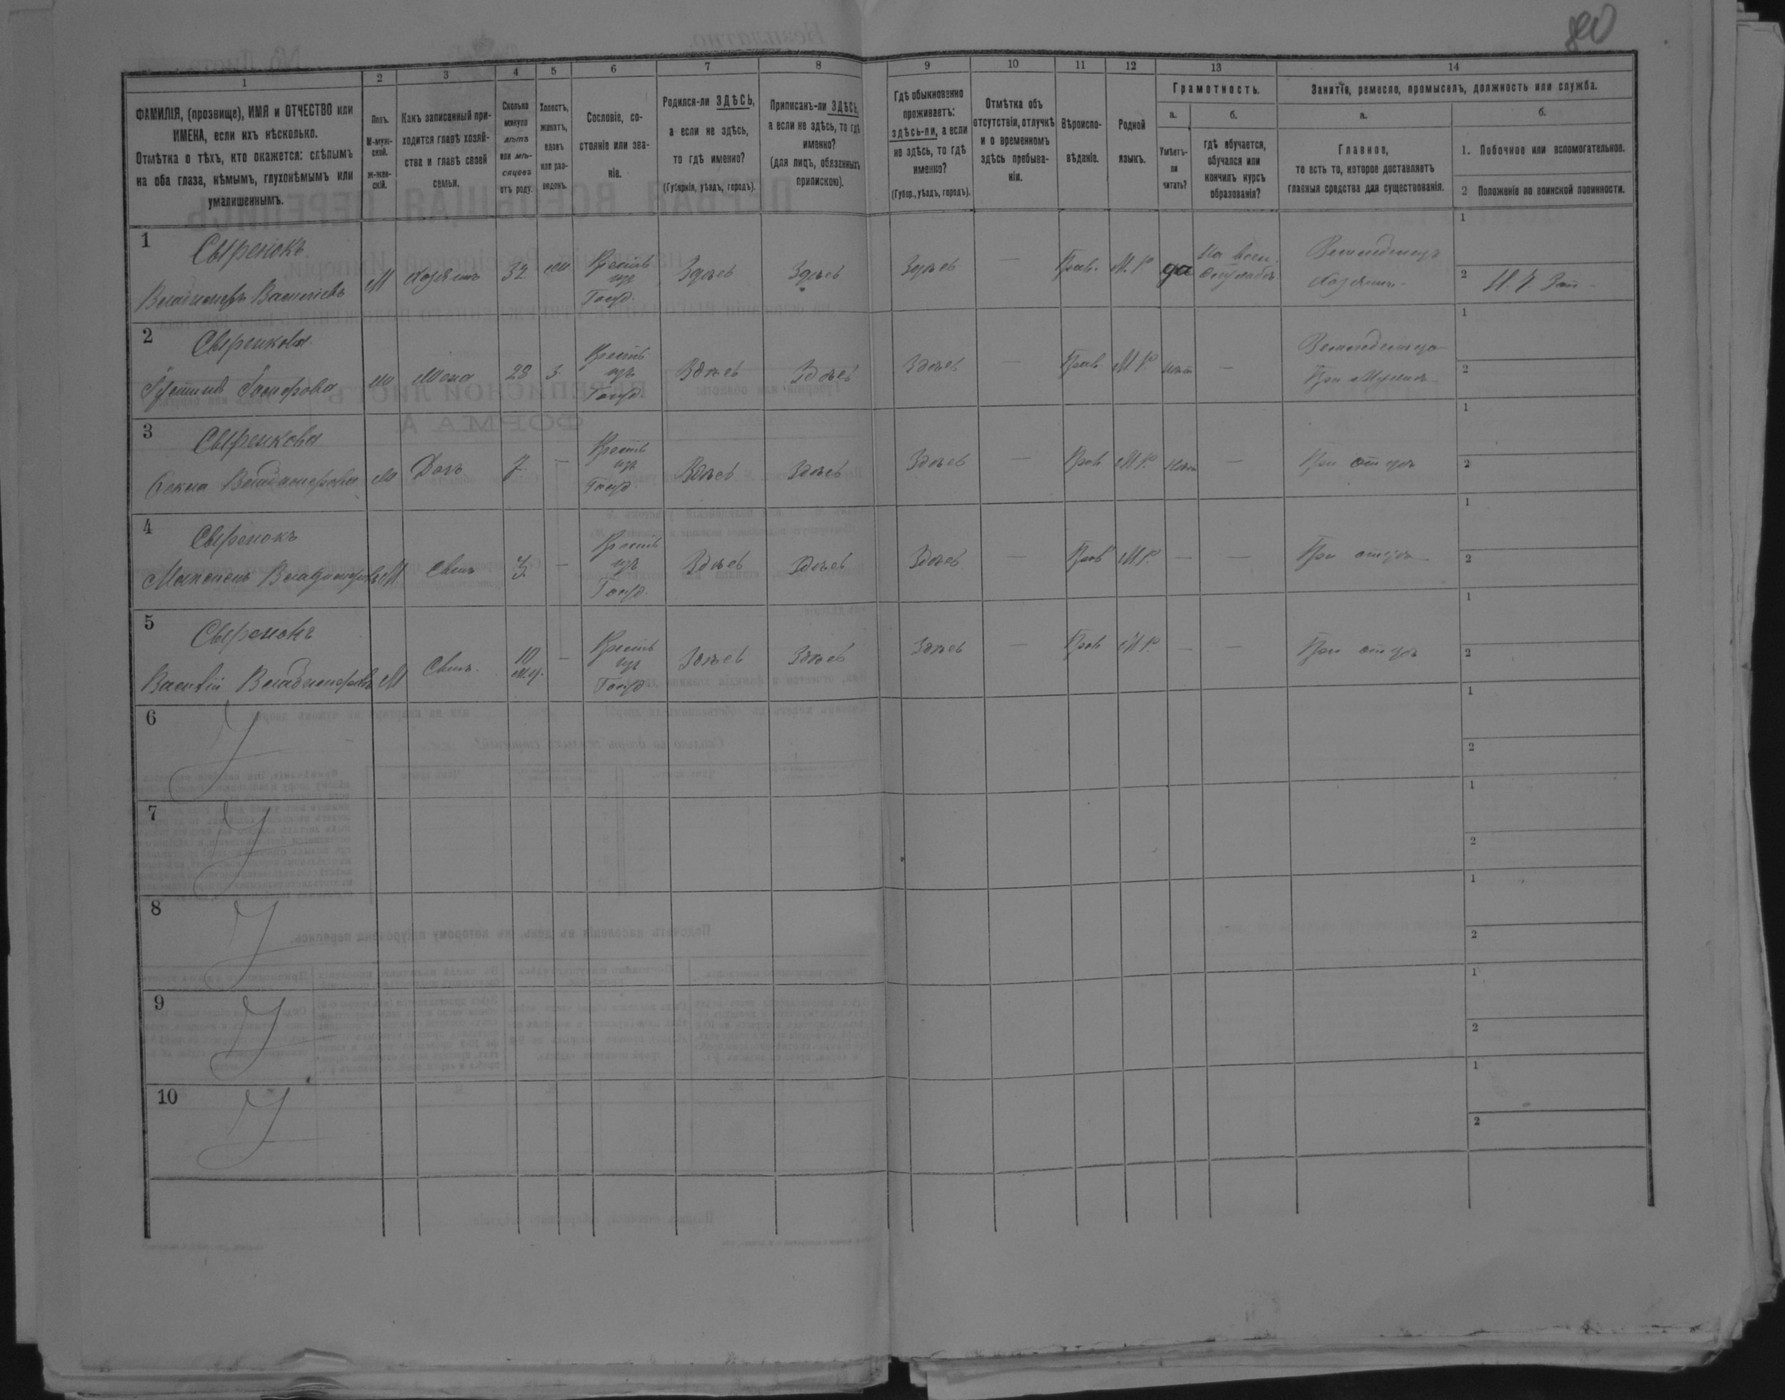 80
1
2
3
4
5
6
7
8
9
10
11
12
13
14
ФАМИЛІЯ, (прозвище), ИМЯ и ОТЧЕСТВО или
ИМЕНА, если ихъ нѣсколько.
Отмѣтка о тѣхъ, кто окажется: слѣпымъ
на оба глаза, нѣмымъ, глухонѣмымъ или
умалишеннымъ.
Полъ.
М-муж-
ской.
Ж-жен-
скій.
Какъ записанный при-
ходится главѣ хозяй-
ства и главѣ своей
семьи.
Сколько
минуло
лѣтъ
или мѣ-
сяцевъ
отъ роду.
Холостъ,
женатъ,
вдовъ
или раз-
веденъ.
Сословіе, со-
стояніе или зва-
ніе.
Родился-ли ЗДѢСЬ,
а если не здѣсь,
то гдѣ именно?
(Губернія, уѣздъ, городъ).
Приписанъ-ли ЗДѢСЬ,
а если не здѣсь, то гдѣ
именно?
(для лицъ, обязанныхъ
припискою).
Гдѣ обыкновенно
проживаетъ:
здѣсь-ли, а если
не здѣсь, то гдѣ
именно?
(Губер., уѣздъ, городъ).
Отмѣтка объ
отсутствіи, отлучкѣ
и о временномъ
здѣсь пребыва-
ніи.
Вѣроиспо-
вѣданіе.
Родной
языкъ.
Грамотность.
а.
Умѣетъ-
ли
читать?
б.
гдѣ обучается,
обучался или
кончилъ курсъ
образованія?
Занятіе, ремесло, промыселъ, должность или служба.
а.
Главное,
то есть то, которое доставляетъ
главныя средства для существованія.
б.
1. Побочное или вспомогательное.
2 Положеніе по воинской повинности.
1
Сыренокъ
Владимиръ Васильевъ
М
Хозяинъ
32
Крестьян
изъ
Госуд.
Здѣсь
Здѣсь
Здѣсь
—
Прав.
М.Р
да
На воен.
службѣ
Земледелецъ
Хозяинъ
1
2
2
Сыренкова
ж
Жена
29
з
Крестьян
изъ
Госуд
Здѣсь
Здѣсь
Здѣсь
—
Прав
М Р
нѣтъ
—
Земледелица
При мужѣ
1
2
3
Сыренкова
Фекла Владимерова
ж
Дочь
7
—
Крестьян
изъ
Госуд
Здѣсь
Здѣсь
Здѣсь
—
Прав
М Р
нѣтъ
—
При отцѣ
1
2
4
Сыренокъ
Владимеровъ
М
Сынъ
3
—
Крестьян
изъ
Госуд.
Здѣсь
Здѣсь
Здѣсь
—
Прав
М Р.
—
—
При отцѣ
1
2
5
Сыренокъ
Василій Владимеровъ
М
Сынъ
10
мец.
—
Крестьян
изъ
Госуд
Здѣсь
Здѣсь
Здѣсь
—
Прав
М Р
—
—
При отцѣ
1
2
6
1
2
7
1
2
8
1
2
9
1
2
10
1
2